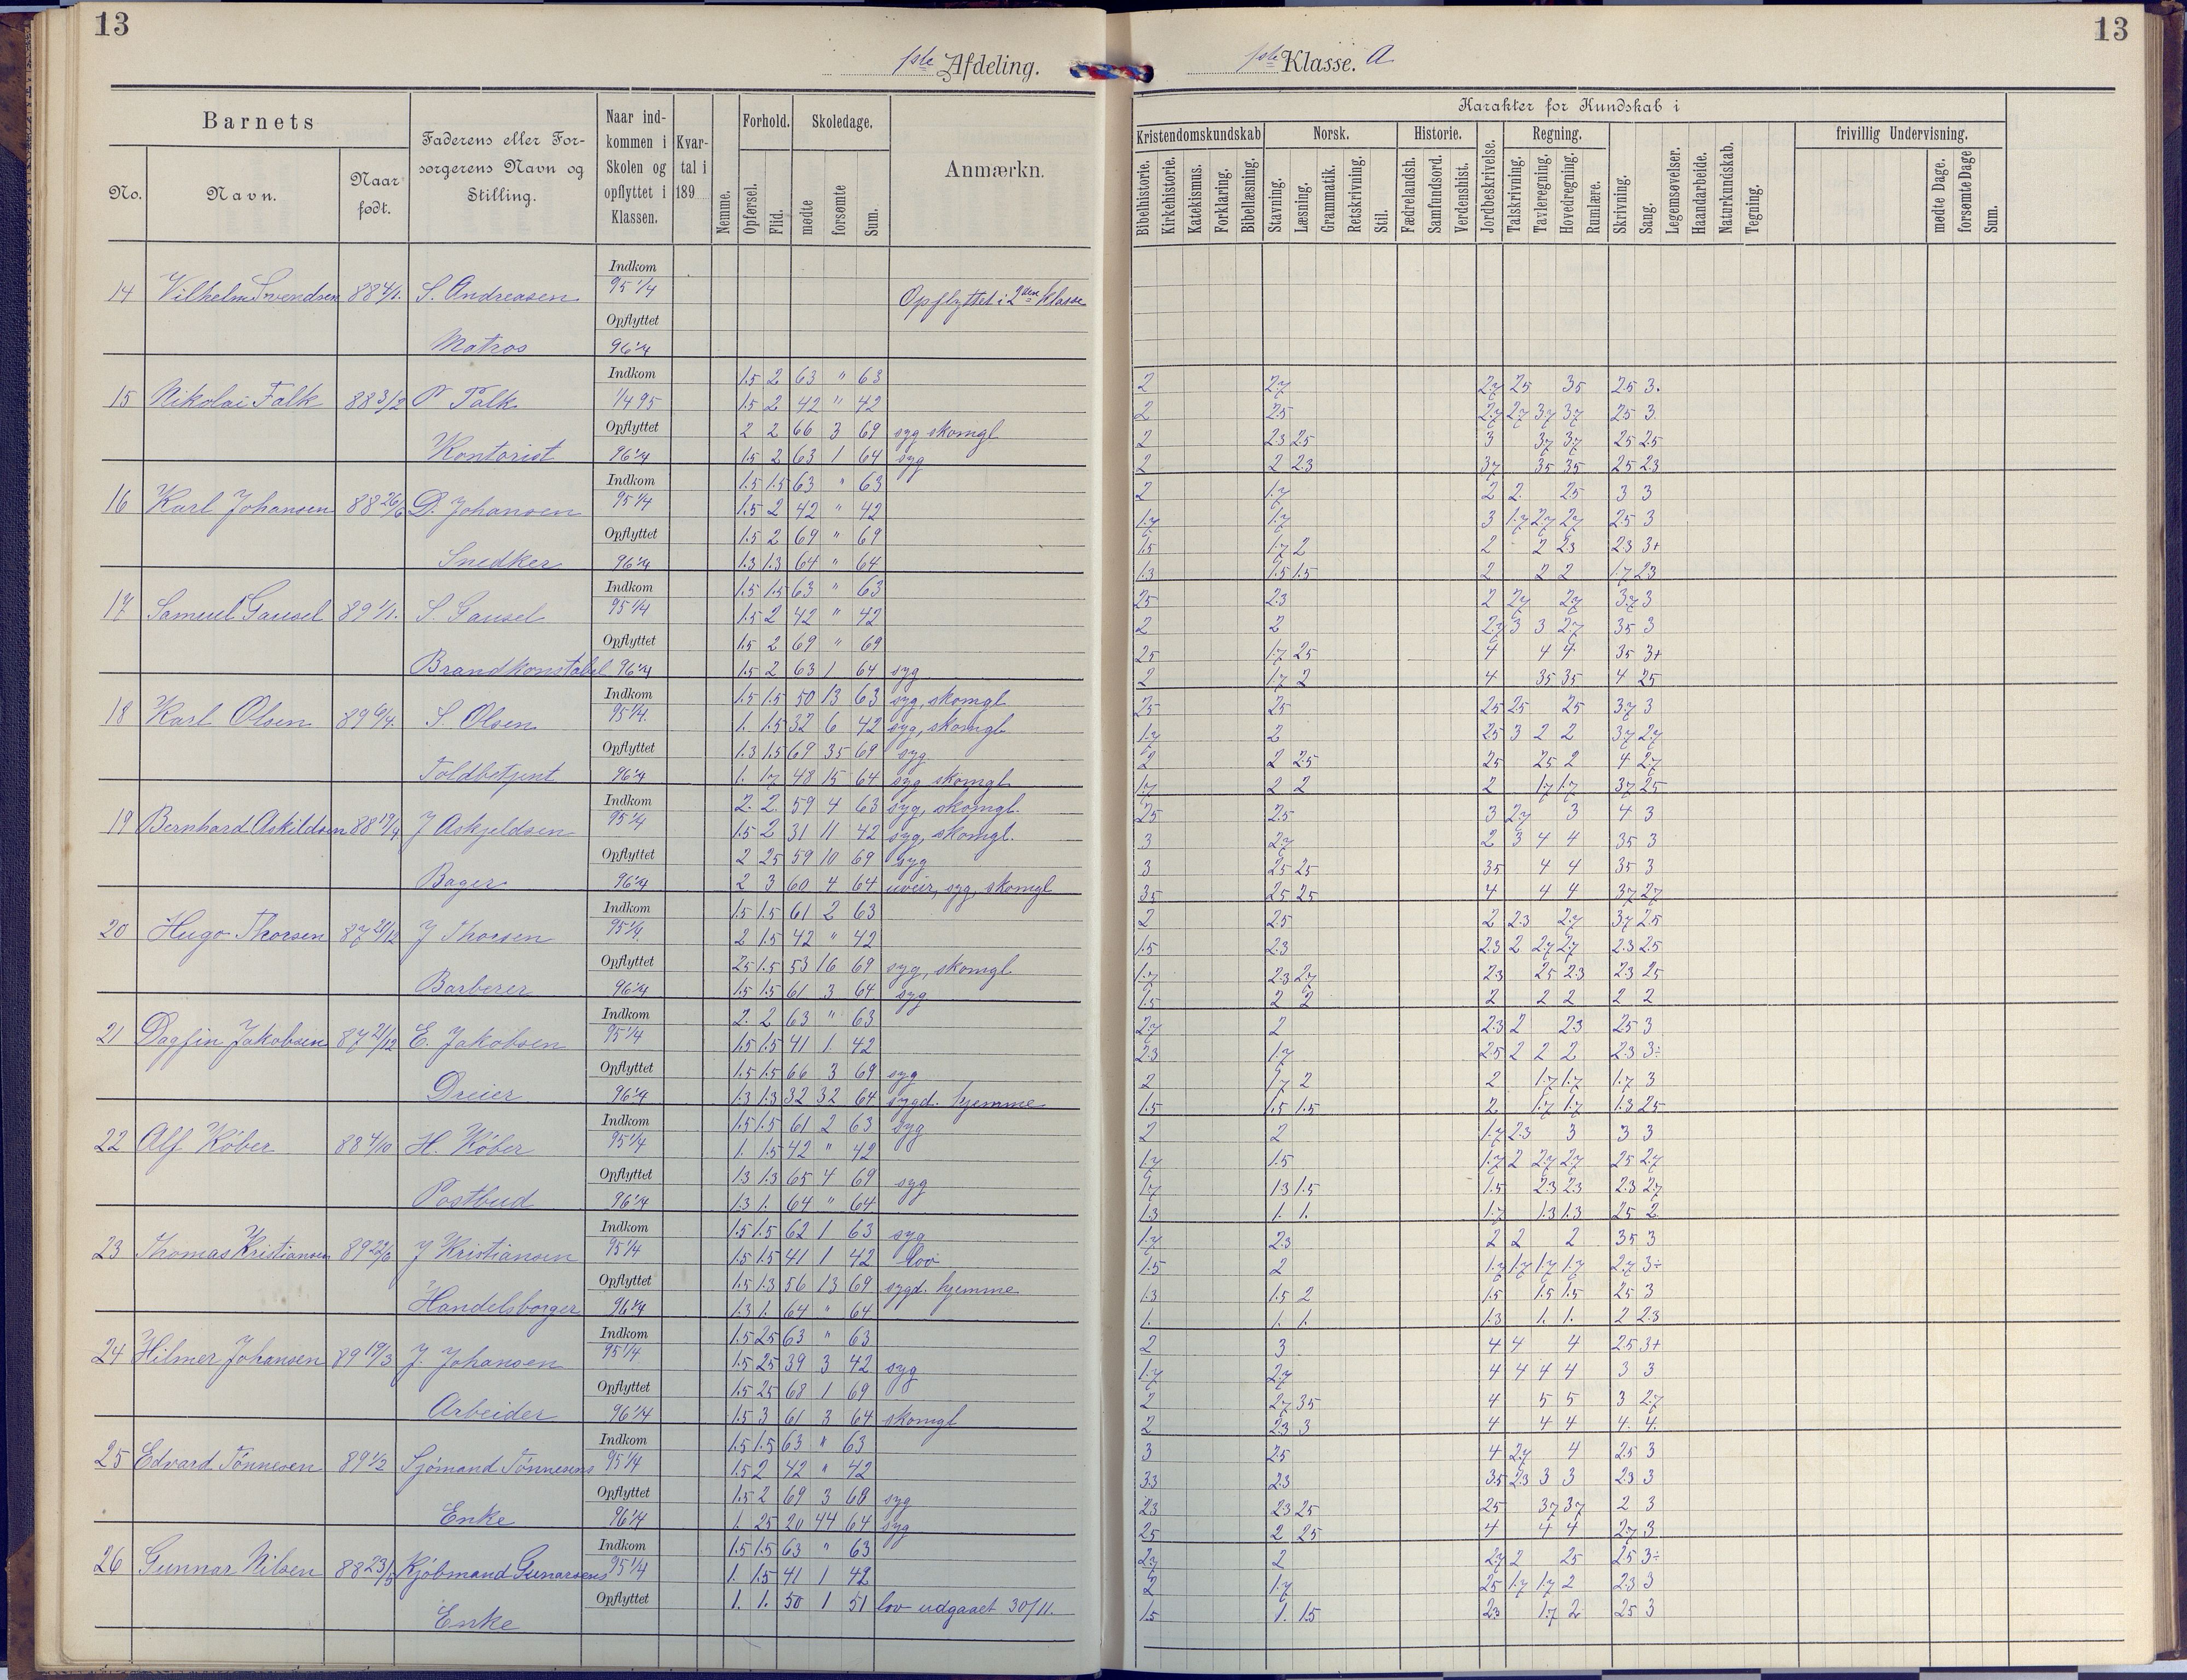 13
13
1ste Afdeling.
1ste Klasse. A
Barnets
No.
Navn.
Naar født.
Faderens eller Forsorgerens Navn og Stilling.
Naar indkommen i Skolen og opflyttet i Klassen.
Kvartal i 189
Nemme.
Forhold.
Opførsel.
Flid.
Skoledage.
mødte
forsømte
Sum.
Anmærkn.
Karakter for Kundskab i
Kristendomskundskab
Bibelhistorie.
Kirkehistorie.
Katekismus.
Forklaring.
Bibellæsning.
Norsk.
Stavning.
Læsning.
Grammatik.
Retskrivning.
Stil.
Historie.
Fædrelandsh.
Samfundsord.
Verdenshist.
Jordbeskrivelse.
Regning.
Talskrivning.
Tavleregning.
Hovedregning.
Rumlære.
Skrivning.
Sang.
Legemsøvelser.
Haandarbeide.
Naturkundskab.
Tegning.
frivillig Undervisning.
mødte Dage.
forsømte Dage
Sum.
Indkom
14 Vilhelm Svendsen 88 4/1. S. Andreasen 95 1/4 Opflyttet i 2den Klasse
Opflyttet
Matros 96 1/4
Indkom 1.5 2 63 " 63 2 2.7 2.7 2.5 3.5 2.5 3.
15 Nikolai Falk 88 3/2 P Falk 1/4 95 1.5 2 42 " 42 2 2.5 2.7 2.7 3.7 3.7 2.5 3
Opflyttet 2 2 66 3 69 syg skomgl 2 2.3 2.5 3 3.7 3.7 2.5 2.5
Kontorist 96 1/4 1.5 2 63 1 64 syg 2 2 2.3 3.7 3.5 3.5 2.5 2.3
Indkom 1.5 1.5 63 " 63 2 1.7 2 2. 2.5 3 3
16 Karl Johansen 88 26/6 D. Johansen 95 1/4 1.5 2 42 " 42 1.7 1.7 3 1.7 2.7 2.7 2.5 3
Opflyttet 1.5 2 69 " 69 1.5 1.7 2 2 2 2.3 2.3 3+
Snedker 96 1/4 1.3 1.3 64 " 64 1.3 1.5 1.5 2 2 2 1.7 2.3
Indkom 1.5 1.5 63 " 63 2.5 2.3 2 2.7 2.7 3.7 3
17 Samuel Gausel 89 1/1. S. Gausel 95 1/4 1.5 2 42 " 42 2 2 2.7 3 3 2.7 3.5 3
Opflyttet 1.5 2 69 " 69 2.5 1.7 2.5 4 4 4 3.5 3+
Brandkonstabel 96 1/4 1.5 2 63 1 64 syg 2 1.7 2 4 3.5 3.5 4 2.5
Indkom 1.5 1.5 50 13 63 syg, skomgl. 2.5 2.5 2.5 2.5 2.5 3.7 3
18 Karl Olsen 89 6/4. S. Olsen 95 1/4. 1. 1.5 32 6 42 syg, skomgl. 1.7 2 2.5 3 2 2 3.7 2.7
Opflyttet 1.3 1.5 69 35 69 syg 2 2 2.5 2.5 2.5 2 4 2.7
Toldbetjent 96 1/4 1. 1.7 48 15 64 syg skomgl 1.7 2 2 2 1.7 1.7 3.7 2.5
Indkom 2. 2. 59 4 63 syg, skomgl. 2.5 2.5 3 2.7 3 4 3
19 Bernhard Askildsen 88 17/9 J Askjeldsen 95 1/4 1.5 2 31 11 42 syg, skomgl. 3 2.7 2 3 4 4 3.5 3
Opflyttet 2 2.5 59 10 69 syg 3 2.5 2.5 3.5 4 4 3.5 3
Bager 96 1/4 2 3 60 4 64 uveir, syg, skomgl 3.5 2.5 2.5 4 4 4 3.7 2.7
Indkom 1.5 1.5 61 2 63 2 2.5 2 2.3 2.7 3.7 2.5
20 Hugo Thorsen 87 21/12 J Thorsen 95 1/4. 2 1.5 42 " 42 1.5 2.3 2.3 2 2.7 2.7 2.3 2.5
Opflyttet 2.5 1.5 53 16 69 syg, skomgl 1.7 2.3 2.7 2.3 2.5 2.3 2.3 2.5
Barberer 96 1/4 1.5 1.5 61 3 64 syg 1.5 2 2 2 2 2 2 2
Indkom 2. 2 63 " 63 2.7 2 2.3 2 2.3 2.5 3
21 Dagfin Jakobsen 87 21/12 E. Jakobsen 95 1/4 1.5 1.5 41 1 42 2.3 1.7 2.5 2 2 2 2.3 3÷
Opflyttet 1.5 1.5 66 3 69 syg 2 1.7 2 2 1.7 1.7 1.7 3
Dreier 96 1/4 1.3 1.3 32 32 64 sygd. hjemme 1.5 1.5 1.5 2 1.7 1.7 1.3 2.5
Indkom 1.5 1.5 61 2 63 syg 2 2 1.7 2.3 3 3 3
22 Alf Køber 88 4/10 H. Køber 95 1/4 1. 1.5 42 " 42 1.7 1.5 1.7 2 2.7 2.7 2.5 2.7
Opflyttet 1.3 1.3 65 4 69 syg 1.7 1.3 1.5 1.5 2.3 2.3 2.3 2.7
Postbud 96 1/4 1.3 1. 64 " 64 1.3 1. 1. 1.7 1.3 1.3 2.5 2
Indkom 1.5 1.5 62 1 63 syg 1.7 2.3 2 2 2 3.5 3
23 Thomas Kristiansen 89 22/6 J Kristiansen 95 1/4 1.5 1.5 41 1 42 lov 1.5 2 1.7 1.7 1.7 1.7 2.7 3÷
Opflyttet 1.5 1.3 56 13 69 sygd. hjemme 1.3 1.5 2 1.5 1.5 1.5 2.5 3
Handelsborger 96 1/4 1.3 1. 64 " 64 1. 1. 1. 1.3 1. 1. 2 2.3
Indkom 1.5 2.5 63 " 63 2 3 4 4 4 2.5 3+
24 Hilmer Johansen 89 19/3 J. Johansen 95 1/4 1.5 2.5 39 3 42 syg 1.7 2.7 4 4 4 4 3 3
Opflyttet 1.5 2.5 68 1 69 2 2.7 3.5 4 5 5 3 2.7
Arbeider 96 1/4 1.5 3 61 3 64 skomgl 2 2.3 3 4 4 4 4. 4.
Indkom 1.5 1.5 63 " 63 3 2.5 4 2.7 4 2.5 3
25 Edvard Tönnesen 89 1/2 Sjömand Tönnesens 95 1/4 1.5 2 42 " 42 3.3 2.3 3.5 2.3 3 3 2.3 3
Opflyttet 1.5 2 69 3 68 syg 2.3 2.3 2.5 2.5 3.7 3.7 2 3
Enke 96 1/4 1. 2.5 20 44 64 syg 2.5 2 2.5 4 4 4 2.7 3
Indkom 1.5 1.5 63 " 63 2.7 2 2.7 2 2.5 2.5 3÷
26 Gunnar Nilsen 88 23/5 Kjöbmand Gunarsens 95 1/4 1. 1.5 41 1 42 2 1.7 2.5 1.7 1.7 2 2.3 3
Opflyttet 1. 1. 50 1 51 lov udgaaet 30/11. 1.5 1. 1.5 2.3 1.7 2 2.5 3
Enke